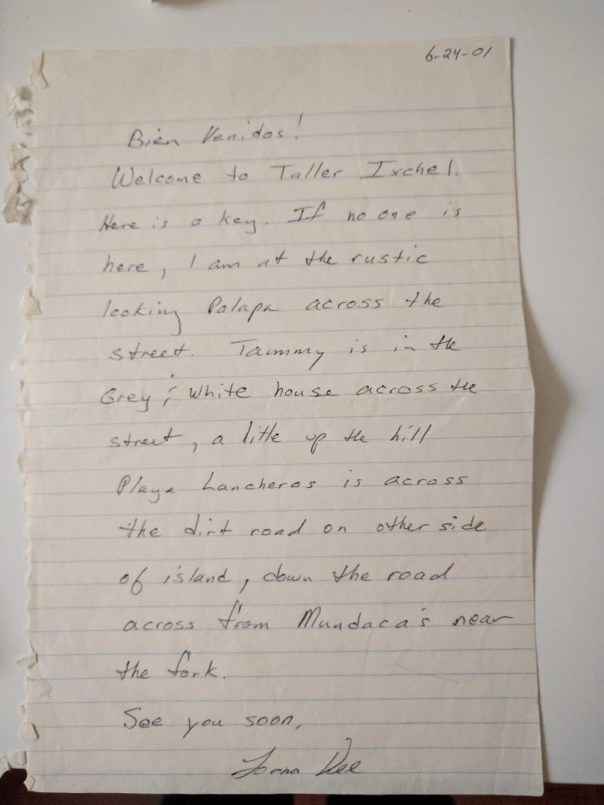 6-24-01
Bien Venidos!
Welcome to Taller Ixchel.
Here is a key. If no one is
here, I am at the rustic
looking Palapa across the
street. Tammy is in the
Grey & White house across the
street, a little up the hill
Playa Lancheros is across
the dirt road on other side
of island, down the road
across from Mundaca's near
the fork.
See you soon,
Lorna Dee